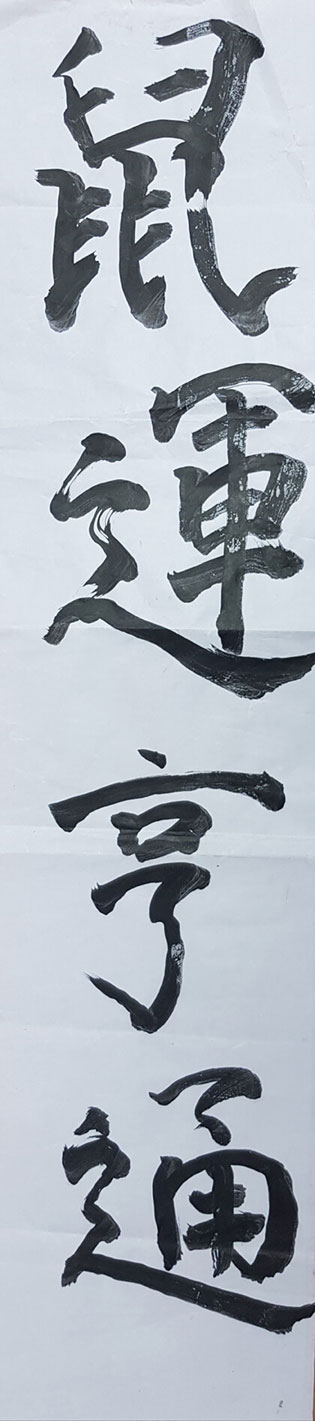 鼠運亨通